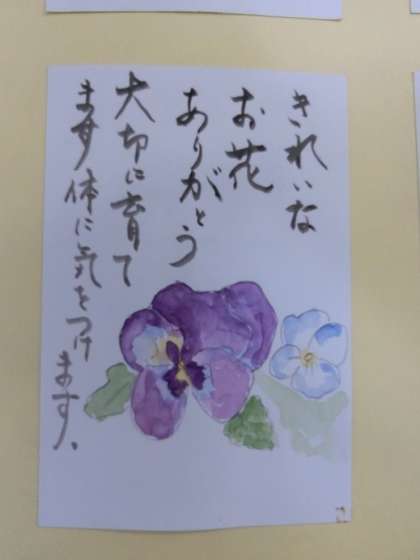 きれいな
お花
ありがとう
大切に育て
ます体に気をつけ
ます、